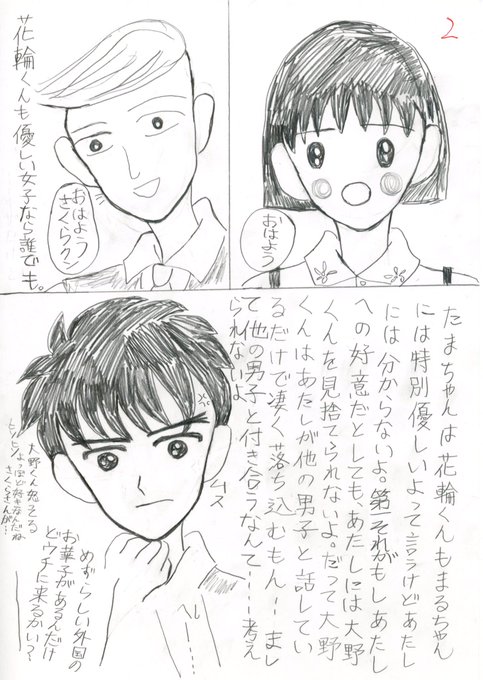 2
おはよう
おはよう
さくらクン
花輪くんも優しい女子なら誰でも。
たまちゃんは花輪くんもまるちゃん
には特別優しいよって言うけどあたし
には分からないよ。第一それがもしあたし
への好意だとしても、あたしには大野
くんを見捨てられないよ。だって大野
くんはあたしが他の男子と話してい
るだけで凄く落ち込むもん…まし
て他の男子と付き合うなんて…考え
られないよ
ムス
へー
めずらしい外国の
お菓子があるんだけ
どウチに来るかい？
大野くん
さくらさんが…